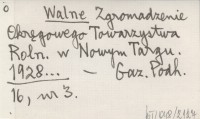 Walne Zgromadzenie
Okręgowego Towarzystwa
Roln. w Nowym Targu.
1928... — Gaz. Podh.
16, nr 3.